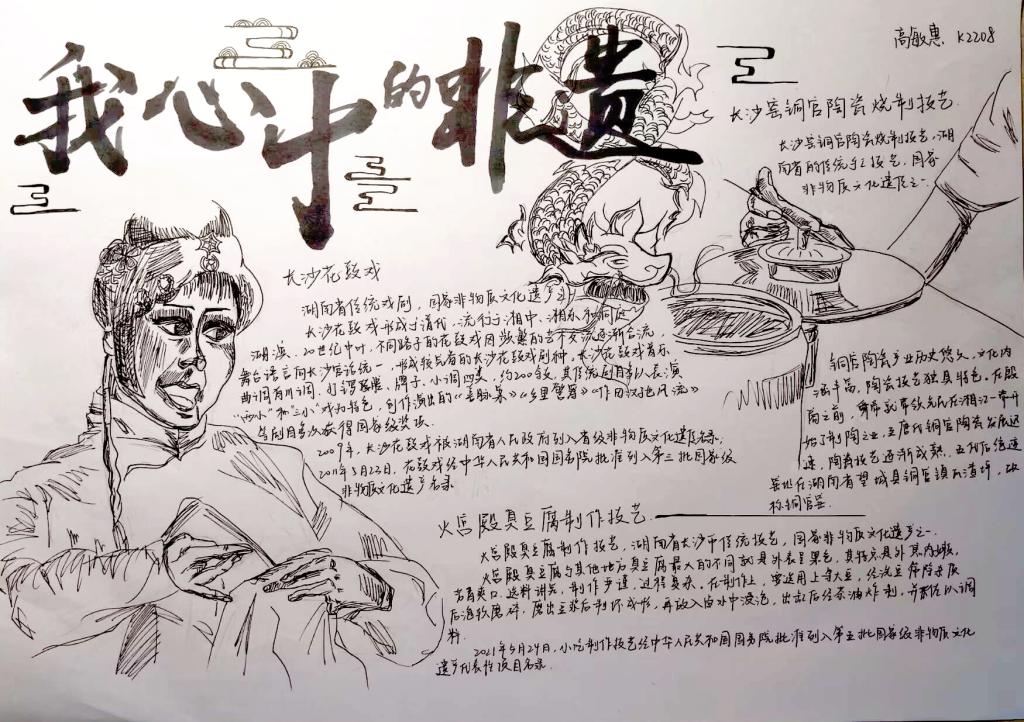 我心中的非遗
高敏惠 K2208
长沙窑铜官陶瓷烧制技艺.
长沙窑铜官陶瓷烧制技艺,湖
南省的传统手工技艺,国家
非物质文化遗产之一.
铜官陶瓷产业历史悠久,文化内
涵丰富,陶瓷技艺独具特色.在殷
商之前,舜帝就带领先民在湘江一带开
始了制陶之业,至唐代铜官陶瓷发展迅
速,陶瓷技艺逐渐成熟.五代后
在湖南省望城县铜官镇瓦渣坪,故
称铜官窑.
长沙花鼓戏
湖南省传统戏剧,国家非物质文化遗产之一
长沙花鼓戏形成于清代,流行于湘中、湘东和洞庭
湖滨,20世纪中叶,不同路子的花鼓戏因频繁的去市交流逐渐合流,
舞台语言向长沙官话统一,形成较完备的长沙花鼓戏剧种,长沙花鼓戏音乐
曲调有川调、打锣腔、牌子、小调四类,约200余支,其传统剧目
"两小"和"三小"戏为特色,创作演出的《喜脉案》《乡里警察》《作田汉也风流》
等剧目多次获得国家级奖项.
2009年,长沙花鼓戏被湖南省人民政府列入省级非物质文化遗产名录;
2011年5月23日,花鼓戏经中华人民共和国国务院批准列入第三批国家级
非物质文化遗产名录
火宫殿臭豆腐制作技艺.
火宫殿臭豆腐制作技艺,湖南省长沙市传统技艺,国家非物质文化遗产之一.
火宫殿臭豆腐与其他地方臭豆腐最大的不同就是外表呈黑色,其特点是外焦内嫩,
选料讲究,制作步骤、过程复杂,在制作上,要选用上等大豆,经洗豆
后泡软磨碎,磨出豆浆后制坯成形,再放入卤水中浸泡,出缸后经茶油炸制,并配佐以调
料.
2021年5月24日,小吃制作技艺经中华人民共和国国务院批准列入第五批国家级非物质文化
遗产代表性项目名录.